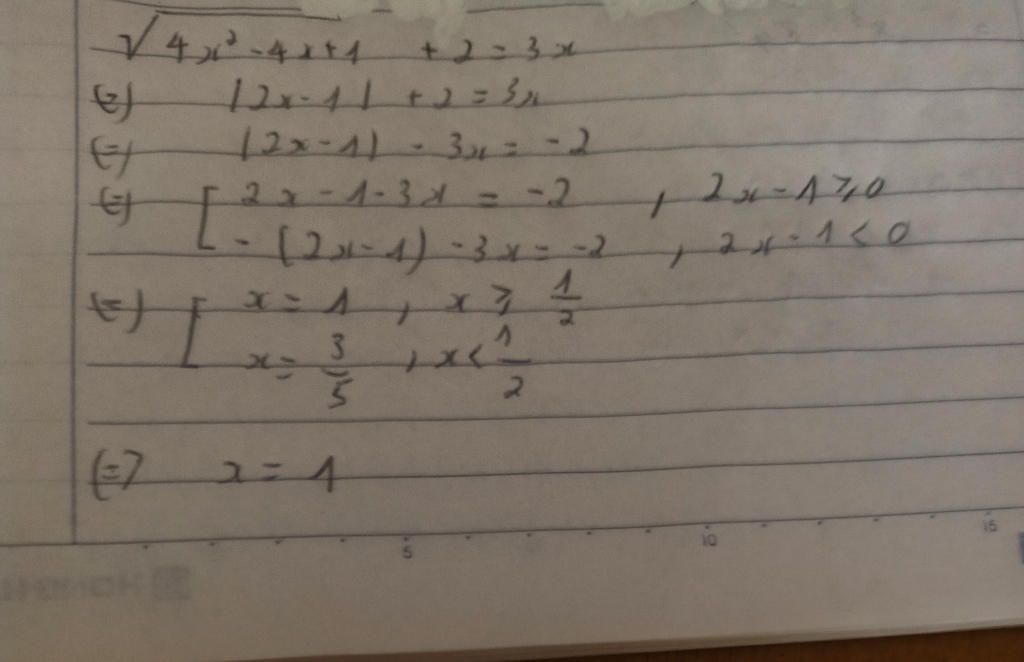 √4x²-4x+1 + 2 = 3x
(=) |2x-1| + 2 = 3x
(=) |2x-1| - 3x = -2
(=) [ 2x-1-3x = -2 , 2x-1 ⩾ 0
- (2x-1) - 3x = -2 , 2x-1 < 0
(=) [ x = 1 , x ⩾ 1/2
x = 3/5 , x < 1/2
(=) x = 1
5 10 15